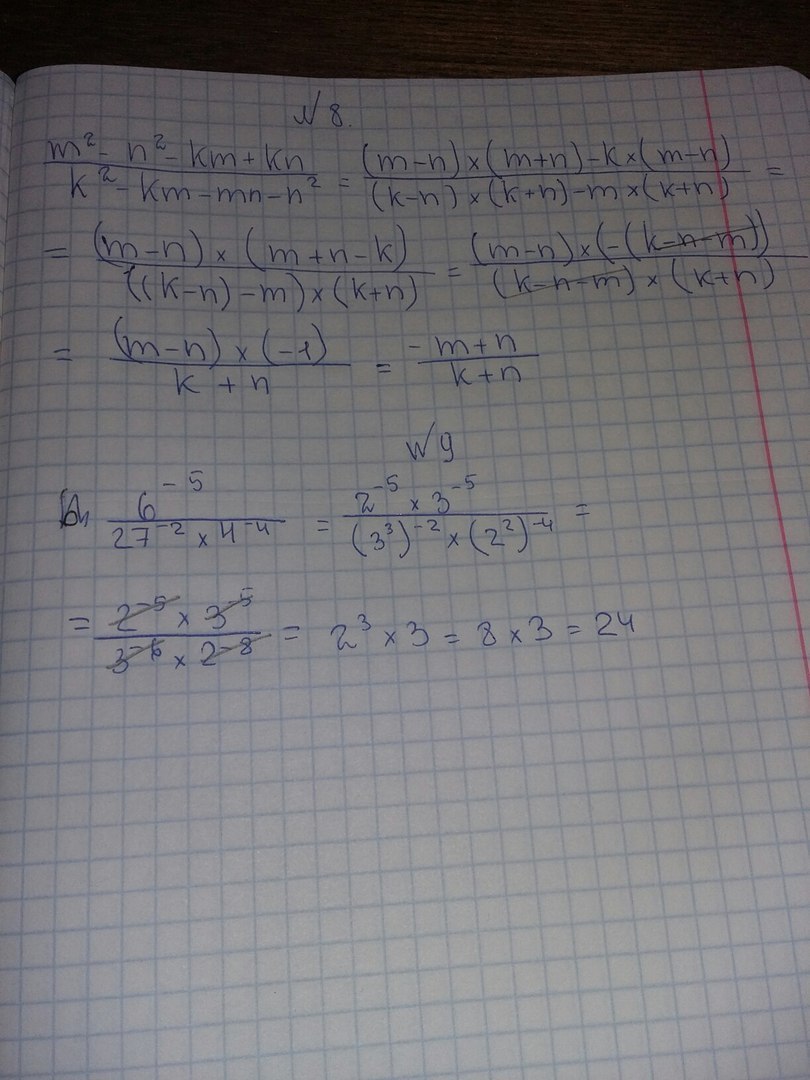 N 8.
(m² - n² - km + kn)/(k² - km - mn - n²) = ((m-n)×(m+n)-k×(m-n))/((k-n)×(k+n)-m×(k+n)) =
= ((m-n)×(m+n-k))/(((k-n)-m)×(k+n)) = ((m-n)×(-(k-n-m)))/((k-n-m)×(k+n))
= ((m-n)×(-1))/(k+n) = (-m+n)/(k+n)
N 9
6⁻⁵/(27⁻²×4⁻⁴) = (2⁻⁵×3⁻⁵)/((3³)⁻²×(2²)⁻⁴) =
= (2⁻⁵×3⁻⁵)/(3⁻⁶×2⁻⁸) = 2³×3 = 8×3 = 24